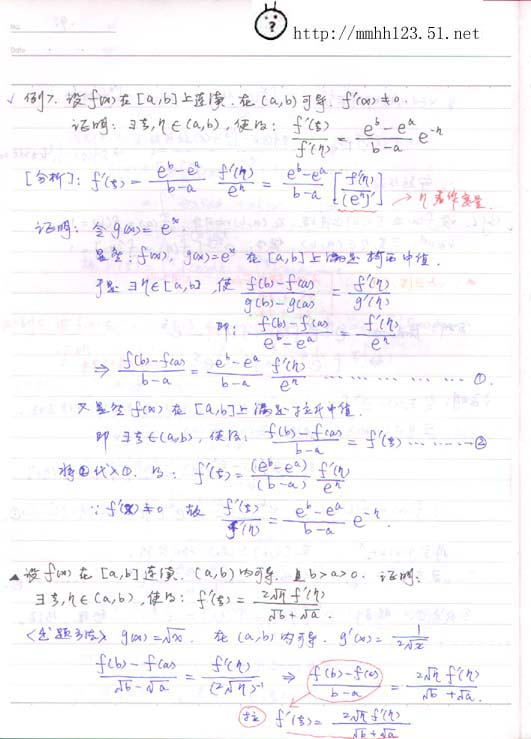 No.
Date
http://mmhh123.51.net
√ 例7. 设f(x)在[a,b]上连续. 在(a,b)可导. f'(x)≠0.
证明: ∃ξ,η∈(a,b), 使得: f'(ξ)/f'(η) = (e^b-e^a)/(b-a) e^-η
[分析]: f'(ξ) = (e^b-e^a)/(b-a) f'(η)/e^η = (e^b-e^a)/(b-a) [f'(η)/(e^η)']
→ η 看作变量.
证明: 令g(x)=e^x.
显然: f(x), g(x)=e^x 在[a,b]上满足柯西中值.
于是∃η∈[a,b], 使 (f(b)-f(a))/(g(b)-g(a)) = f'(η)/g'(η)
即: (f(b)-f(a))/(e^b-e^a) = f'(η)/e^η
⇒ (f(b)-f(a))/(b-a) = (e^b-e^a)/(b-a) f'(η)/e^η ………… ①.
又显然f(x)在[a,b]上满足拉氏中值.
即∃ξ∈(a,b), 使得: (f(b)-f(a))/(b-a) = f'(ξ) ……… ②
将②代入①. 得: f'(ξ) = (e^b-e^a)/(b-a) f'(η)/e^η
∵ f'(x)≠0 故 f'(ξ)/f'(η) = (e^b-e^a)/(b-a) e^-η.
▲ 设f(x)在[a,b]连续. (a,b)内可导. 且b>a>0. 证明:
∃ξ,η∈(a,b), 使得: f'(ξ) = 2√η f'(η)/(√b+√a).
g(x)=√x. 在(a,b)内可导. g'(x) = 1/(2√x)
(f(b)-f(a))/(√b-√a) = f'(η)/(2√η)^-1 ⇒ (f(b)-f(a))/(b-a) = 2√η f'(η)/(√b+√a).
拉 f'(ξ) = 2√η f'(η)/(√b+√a)